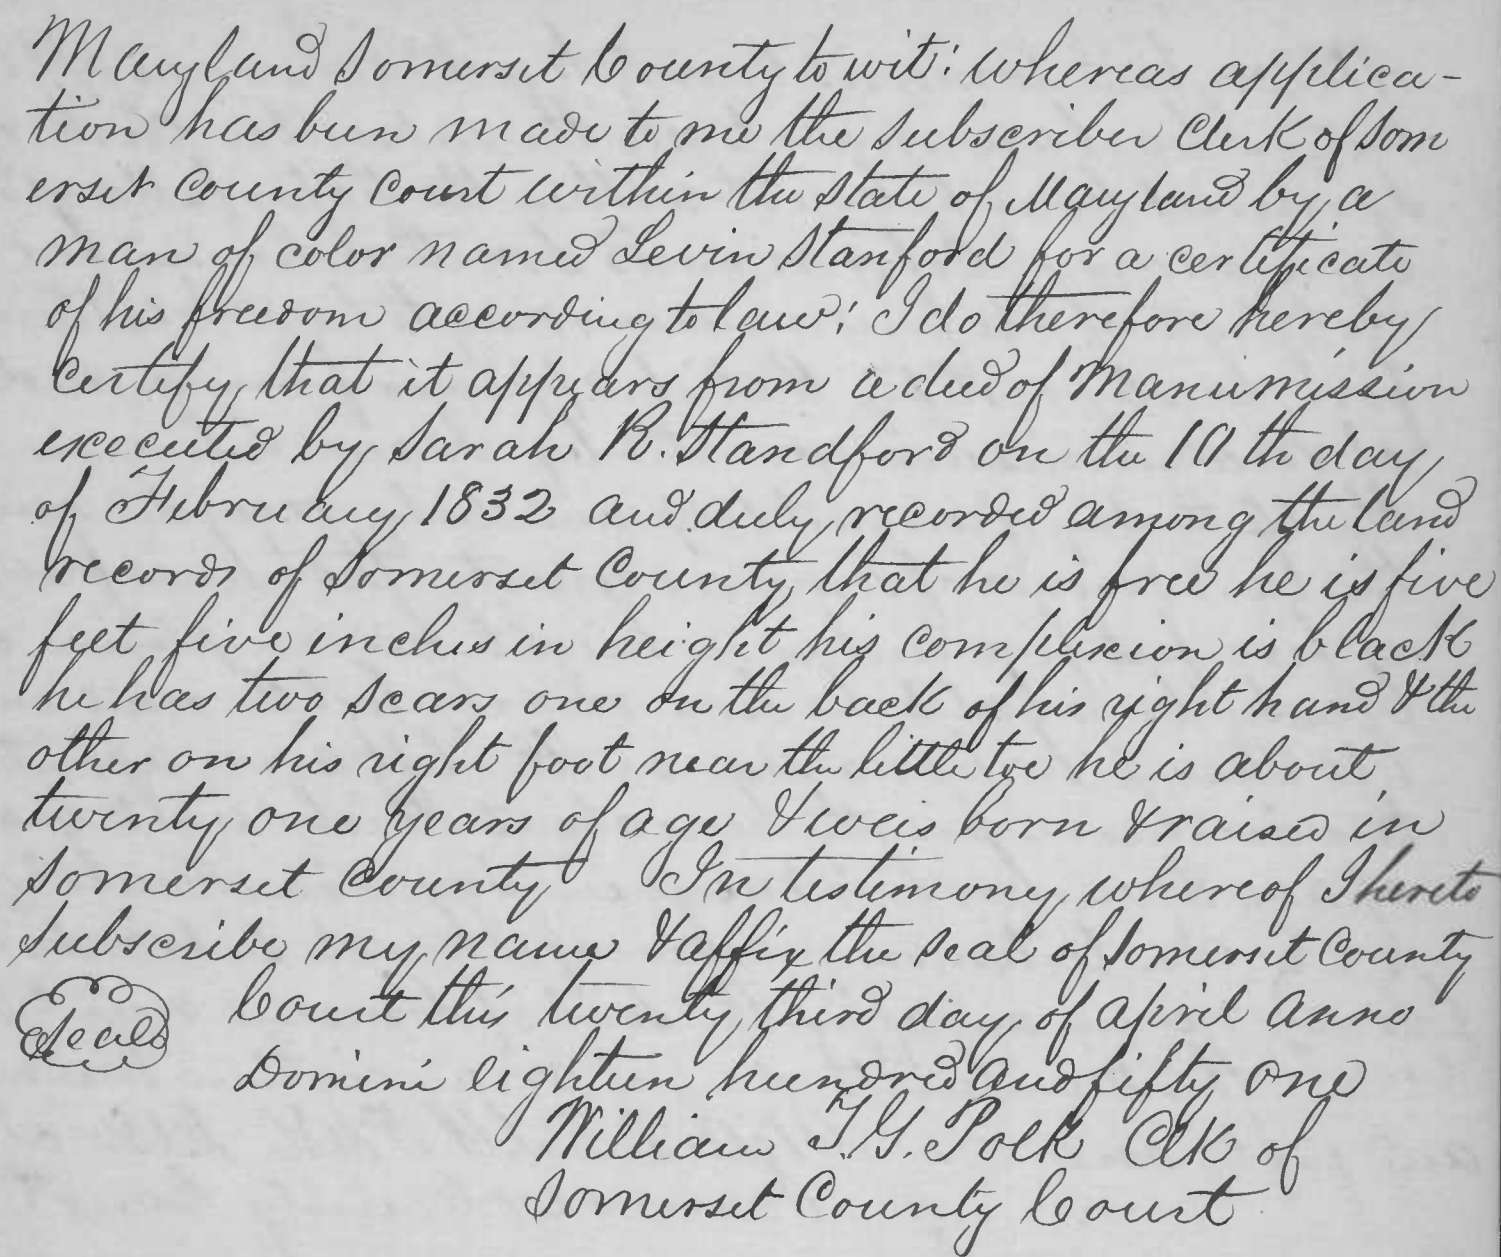 Maryland Somerset County to wit: whereas applica-
tion has been made to me the Subscriber Clerk of Som
erset County Court within the State of Maryland by a
man of color named Levin Stanford for a certificate
of his freedom according to law; I do therefore hereby
Certify that it appears from a deed of Manumission
executed by Sarah R. Standford on the 10th day
of February 1832 and duly recorded among the land
records of Somerset County that he is free he is five
feet five inches in height his complexion is black
he has two scars one on the back of his right hand & the
other on his right foot near the little toe he is about
twenty one years of age & was born & raised in
Somerset County In testimony whereof I hereto
Subscribe my name & affix the seal of Somerset County
Court this twenty third day of April Anno
Seal
Domini eighteen hundred and fifty one
William T.G. Polk Clk of
Somerset County Court